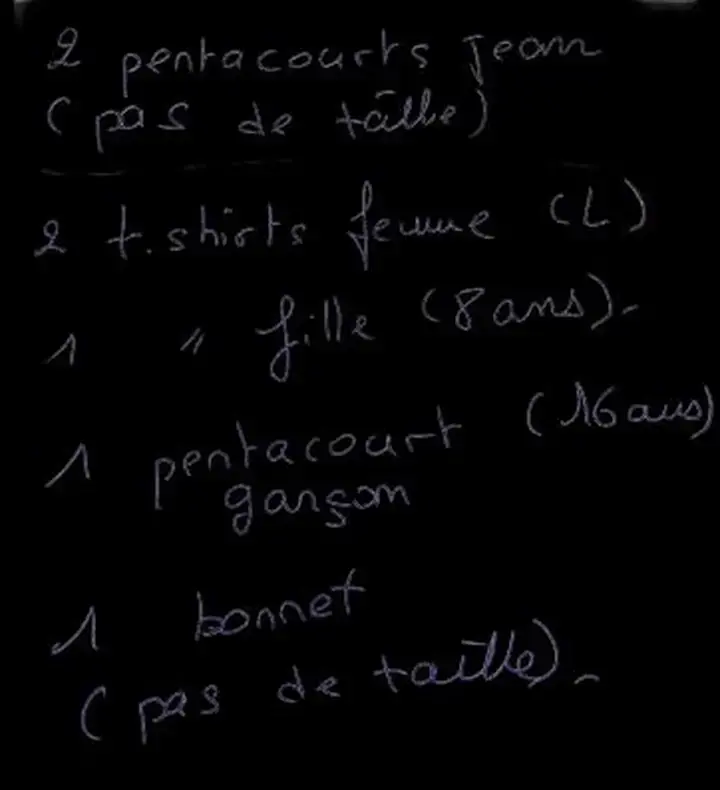 2 pentacourts jean
(pas de taille)
2 t.shirts femme (L)
1 " fille (8 ans).
1 pentacourt (16 ans)
garçon
1 bonnet
(pas de taille).